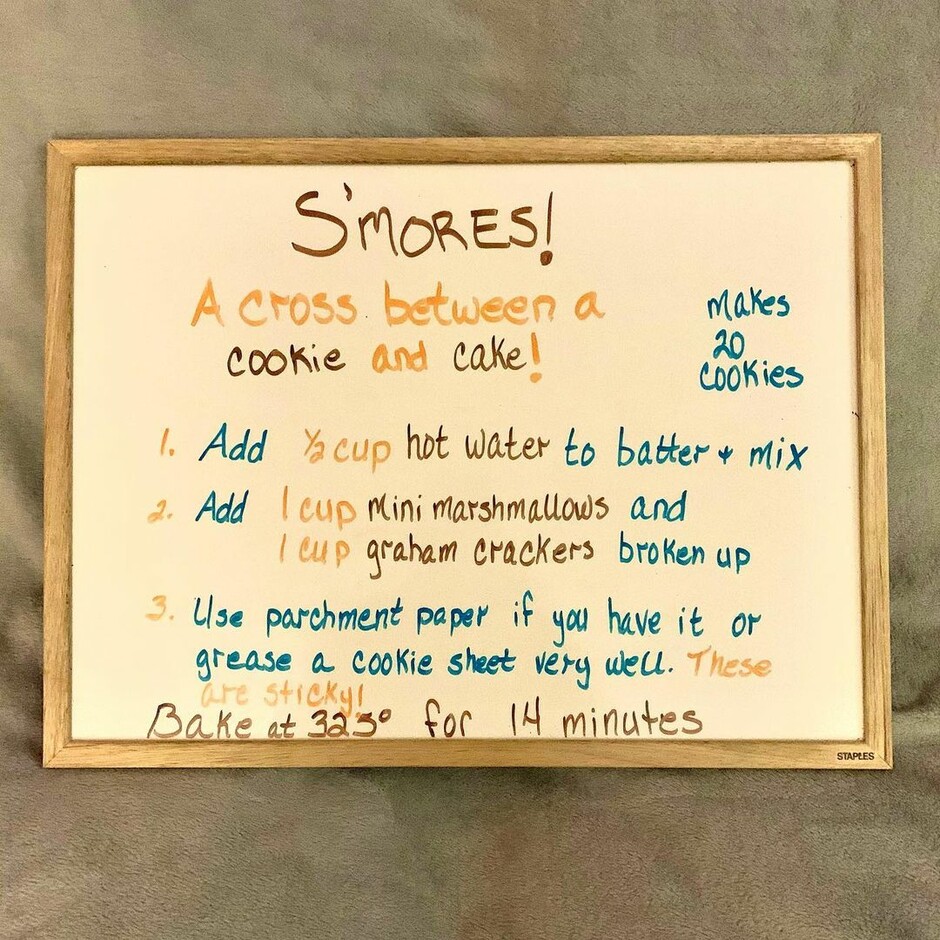 S'MORES!
A cross between a
cookie and cake!
Makes
20
Cookies
1. Add ½ cup hot water to batter + mix
2. Add 1 cup mini marshmallows and
1 cup graham crackers broken up
3. Use parchment paper if you have it or
grease a cookie sheet very well. These
are sticky!
Bake at 325° for 14 minutes
STAPLES